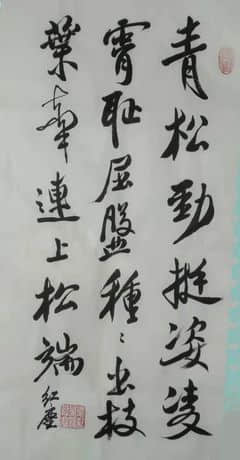 青松勁挺姿凌
霄耻屈盤種〻出枝
葉牽連上松端
红塵